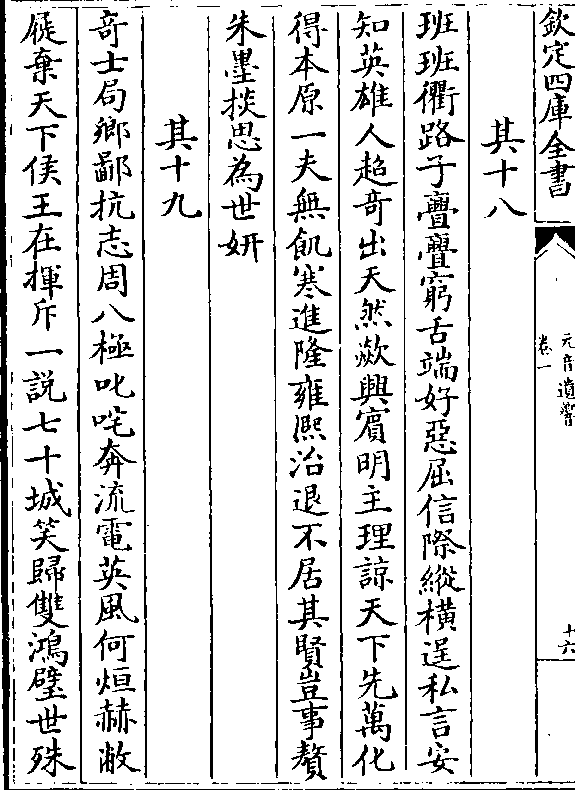 欽定四庫全書
元音遺響
卷一
十六
其十八
班班衢路子亹亹窮舌端好惡屈信際縱橫逞私言安
知英雄人超竒出天然歘興賔明主理諒天下先萬化
得本原一夫無飢寒進隆雍熈治退不居其賢豈事贅
朱墨掞思為世妍
其十九
竒士局鄉鄙抗志周八極叱咤奔流電英風何烜赫敝
屣棄天下侯王在揮斥一說七十城笑歸雙鴻璧世殊